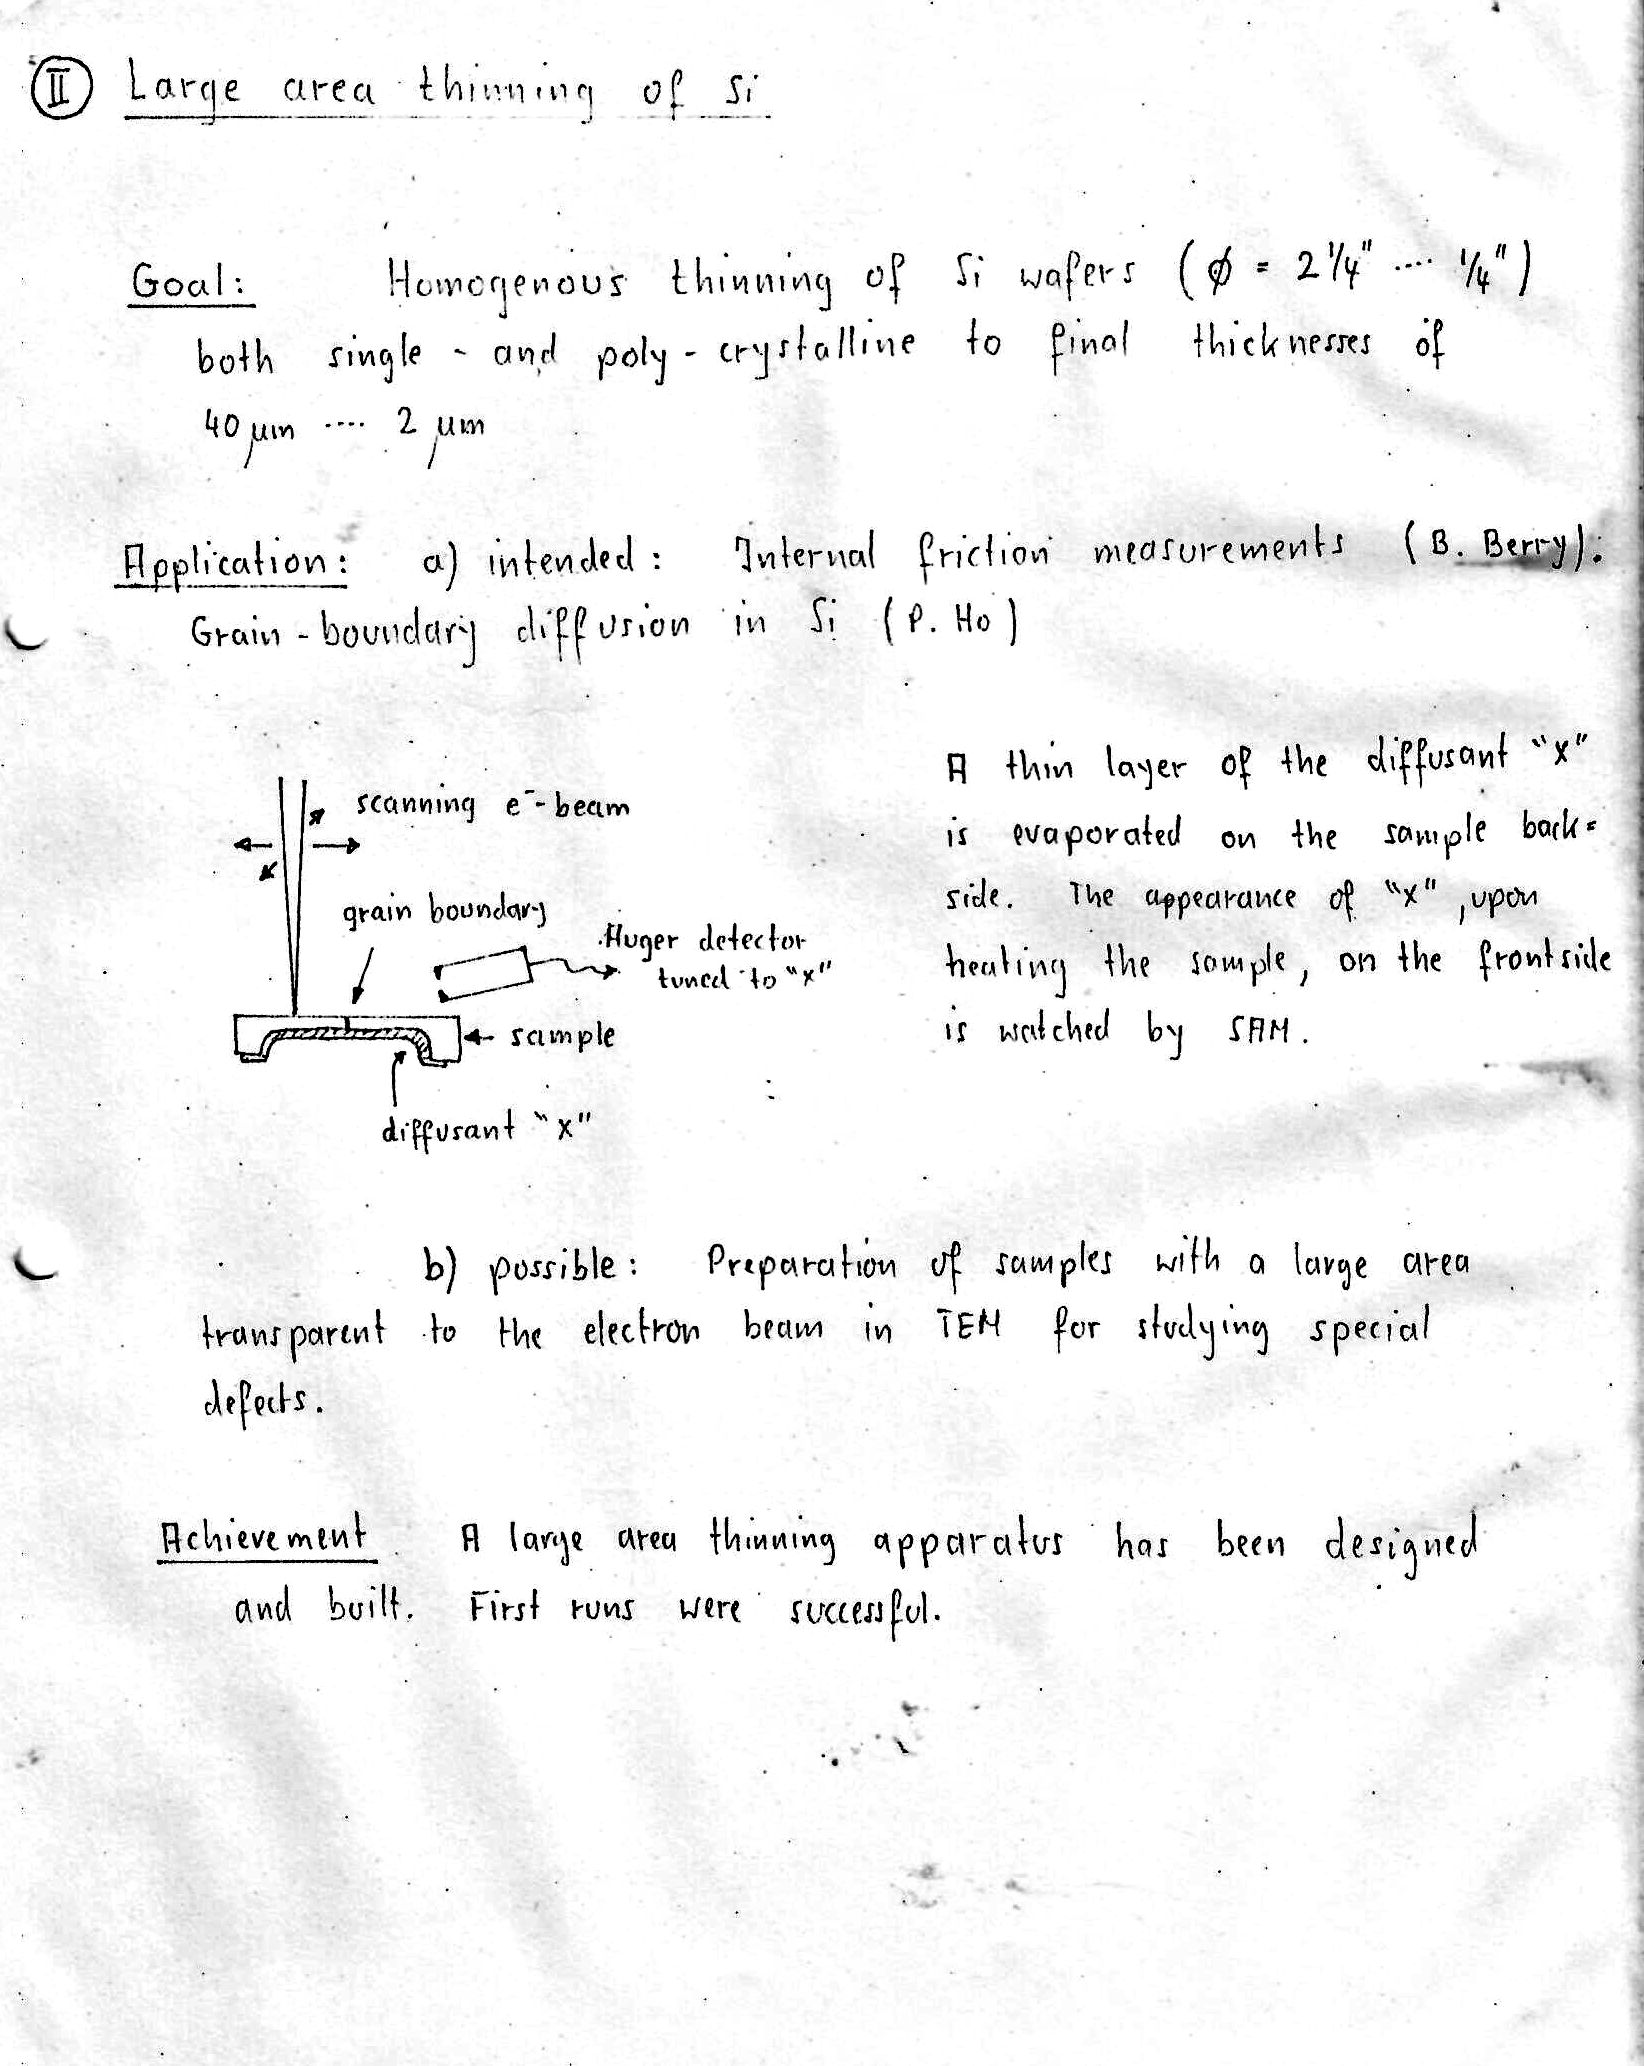 II Large area thinning of Si
Goal: Homogenous thinning of Si wafers (ø = 2 1/4" .... 1/4")
both single - and poly - crystalline to final thicknesses of
40 µm .... 2 µm
Application: a) intended: Internal friction measurements (B. Berry).
Grain - boundary diffusion in Si (P. Ho)
scanning e⁻-beam
grain boundary
Auger detector
tuned to "x"
sample
diffusant "x"
A thin layer of the diffusant "x"
is evaporated on the sample back=
side. The appearance of "x", upon
heating the sample, on the frontside
is watched by SAM.
b) possible: Preparation of samples with a large area
transparent to the electron beam in TEM for studying special
defects.
Achievement A large area thinning apparatus has been designed
and built. First runs were successful.